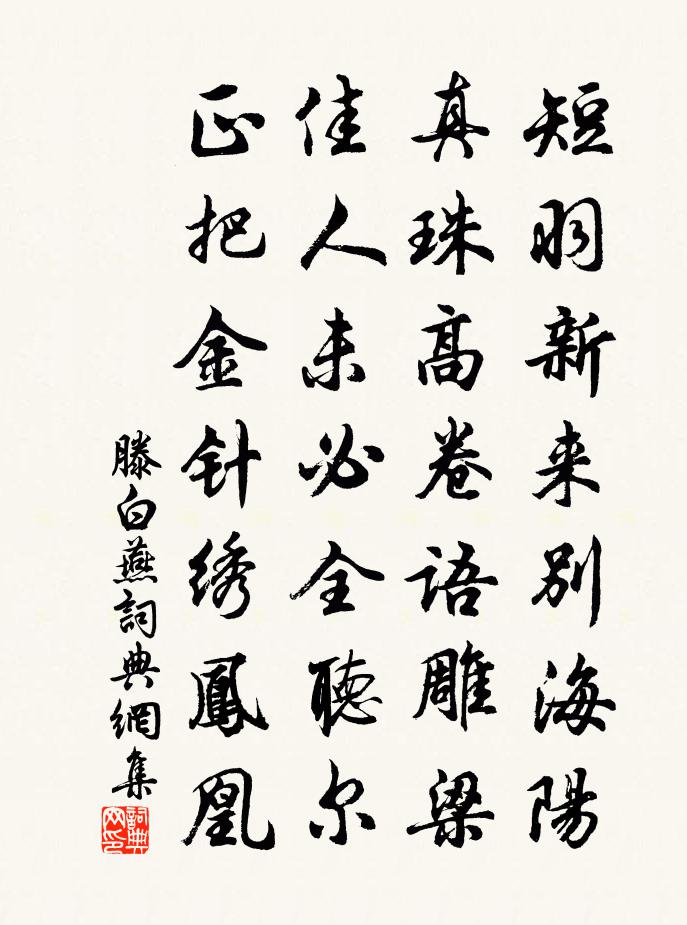 短羽新来别海陽
真珠高卷語雕梁
佳人未必全聽尔
正把金针绣鳳凰
滕白燕詞典網集
詞典网印